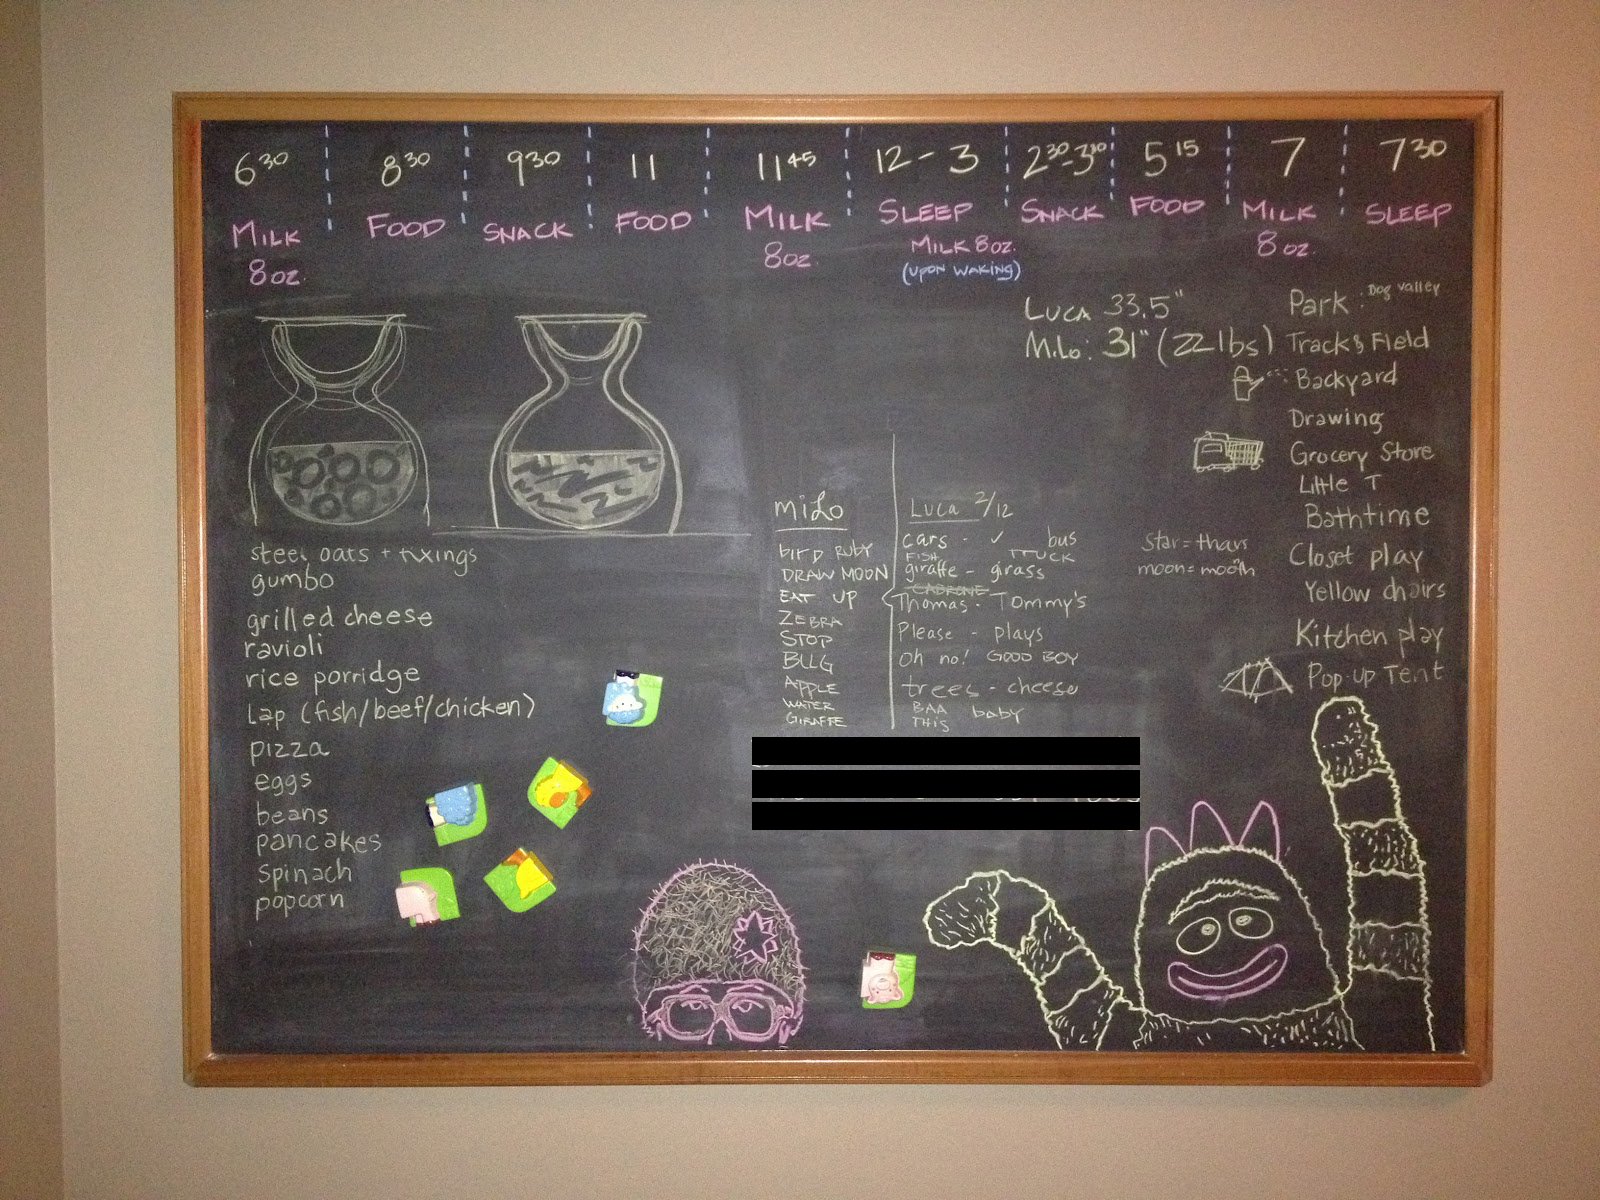 6 30 8 30 9 30 11 11 45 12 - 3 2 30 - 3 30 5 15 7 7 30
MILK FOOD SNACK FOOD MILK SLEEP SNACK FOOD MILK SLEEP
8 oz. 8oz. MILK 8 oz. 8 oz.
(UPON WAKING)
LUCA 33.5"
MiLo: 31" (22 lbs)
Park : Dog Valley
Track & Field
Backyard
Drawing
Grocery Store
Little T
Bathtime
Closet play
Yellow chairs
Kitchen play
Pop-up Tent
star = thars
moon = mooth
steel oats + fixings
gumbo
grilled cheese
ravioli
rice porridge
Lap (fish/beef/chicken)
pizza
eggs
beans
pancakes
spinach
popcorn
miLo
bird RUBY
DRAW MOON
EAT UP
ZEBRA
STOP
BUG
APPLE
WATER
GIRAFFE
Luca 2/12
cars - ✓ bus
FISH TRUCK
giraffe - girass
Thomas - Tommy's
Please - plays
Oh no! GOOD BOY
trees - cheese
BAA baby
THIS